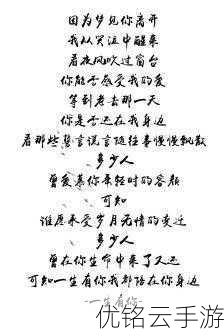 因为梦见你离开
我从哭泣中醒来
看夜风吹过窗台
你能否感受我的爱
等到老去那一天
你是否还在我身边
看那些誓言谎言随往事慢慢飘散
多少人
曾爱慕你年轻时的容颜
可知
谁愿承受岁月无情的变迁
多少人
曾在你生命中来了又还
可知一生有你我都陪在你身边
一生有你
优铭云手机
youmingyun.com